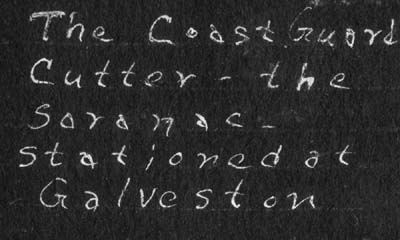 The Coast Guard
Cutter - the
Saranac -
stationed at
Galveston